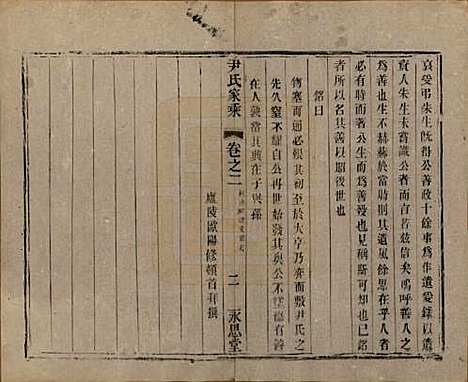 哀受弔朱生既得公善政十餘事為作遺愛錄以遺
貴人朱生未嘗識公者而言若茲信矣嗚呼善人
為善也生不赫赫於當時則其遺風餘思在乎人者
必有時而著公生而無所見稱斯可知也已銘
者所以名其善以昭後世也
銘曰
物塞而通必根其初至於大亨乃奕而敷尹氏之
先久窒不耀自公再世始發其奧公不墜德有善
在人孰當其興在子與孫
廬陵歐陽修頓首拜撰
尹氏家乘
卷之二
二
永思堂